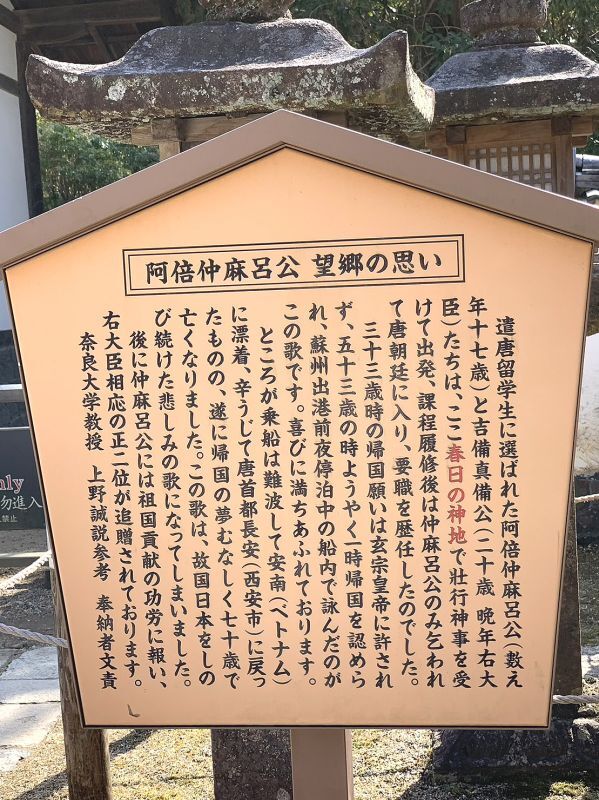 阿倍仲麻呂公 望郷の思い
遣唐留学生に選ばれた阿倍仲麻呂公（数え
年十七歳）と吉備真備公（二十歳 晩年右大
臣）たちは、ここ春日の神地で壮行神事を受
けて出発、課程履修後は仲麻呂公のみ乞われ
て唐朝廷に入り、要職を歴任したのでした。
三十三歳時の帰国願いは玄宗皇帝に許され
ず、五十三歳の時ようやく一時帰国を認めら
れ、蘇州出港前夜停泊中の船内で詠んだのが
この歌です。喜びに満ちあふれております。
ところが乗船は難波して安南（ベトナム）
に漂着、辛うじて唐首都長安（西安市）に戻っ
たものの、遂に帰国の夢むなしく七十歳で
亡くなりました。この歌は、故国日本をしの
び続けた悲しみの歌になってしまいました。
後に仲麻呂公には祖国貢献の功労に報い、
右大臣相応の正二位が追贈されております。
奈良大学教授 上野誠説参考 奉納者文責
nly
勿進入
禁止